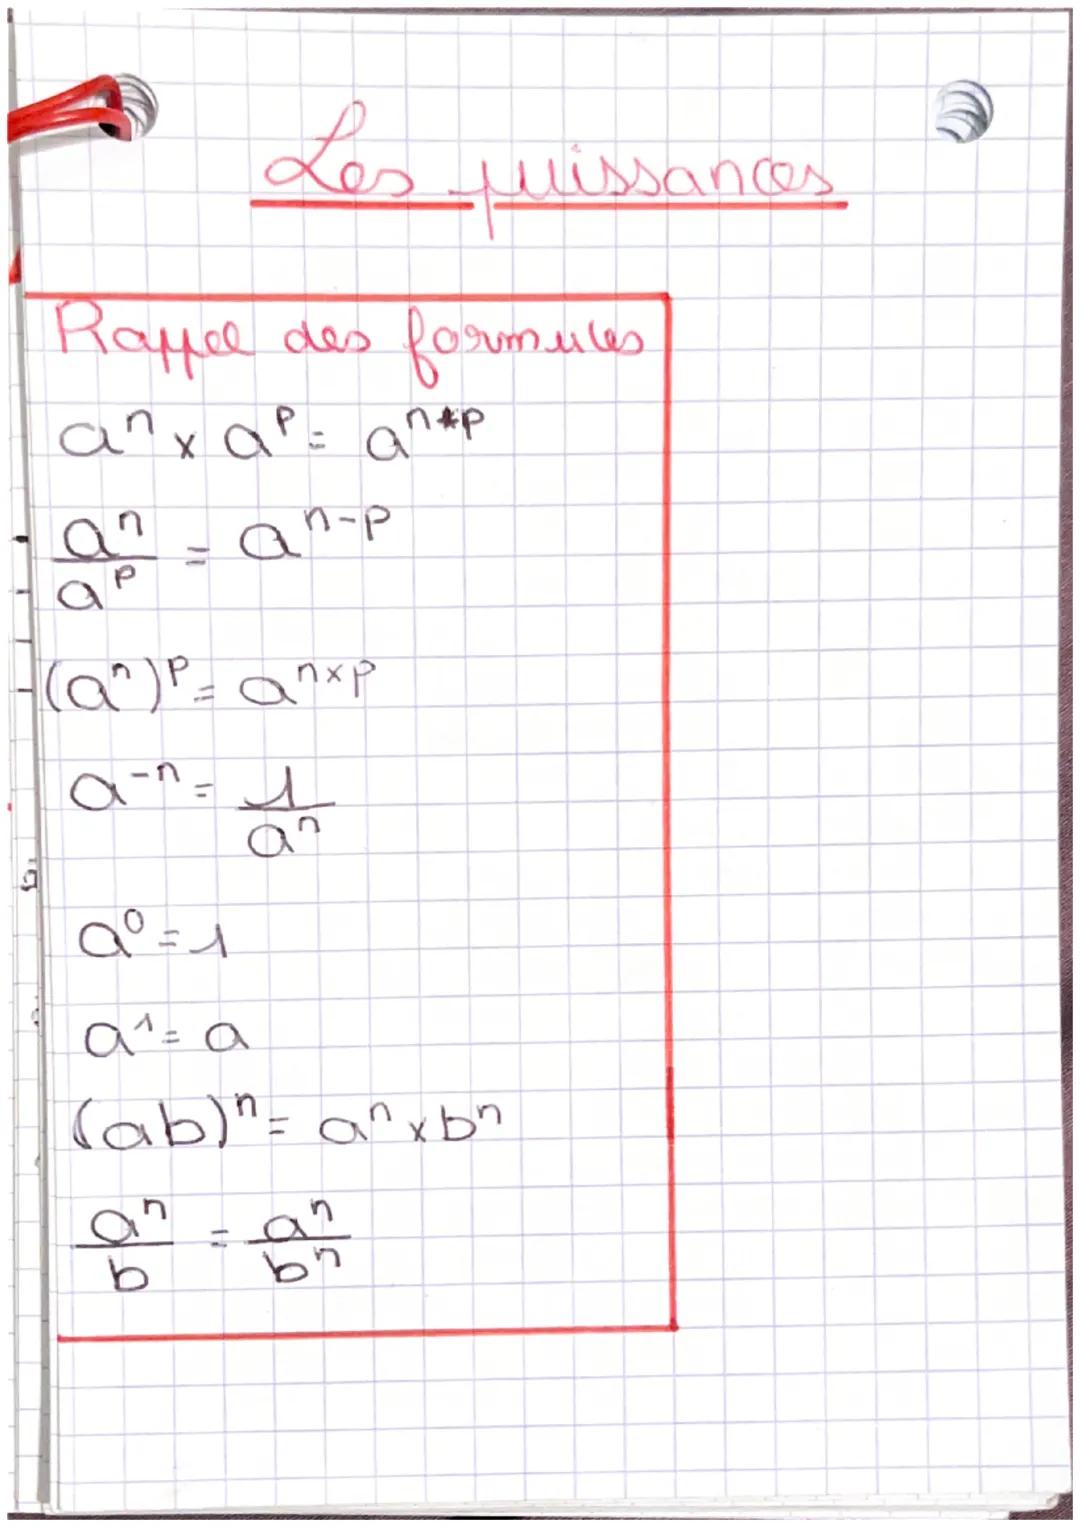 Les puissances
Rappel des formules
aⁿ x aᵖ = aⁿ⁺ᵖ
aⁿ/aᵖ = aⁿ⁻ᵖ
(aⁿ)ᵖ = aⁿˣᵖ
a⁻ⁿ = 1/aⁿ
a⁰ = 1
a¹ = a
(ab)ⁿ = aⁿ x bⁿ
aⁿ/b = aⁿ/bⁿ